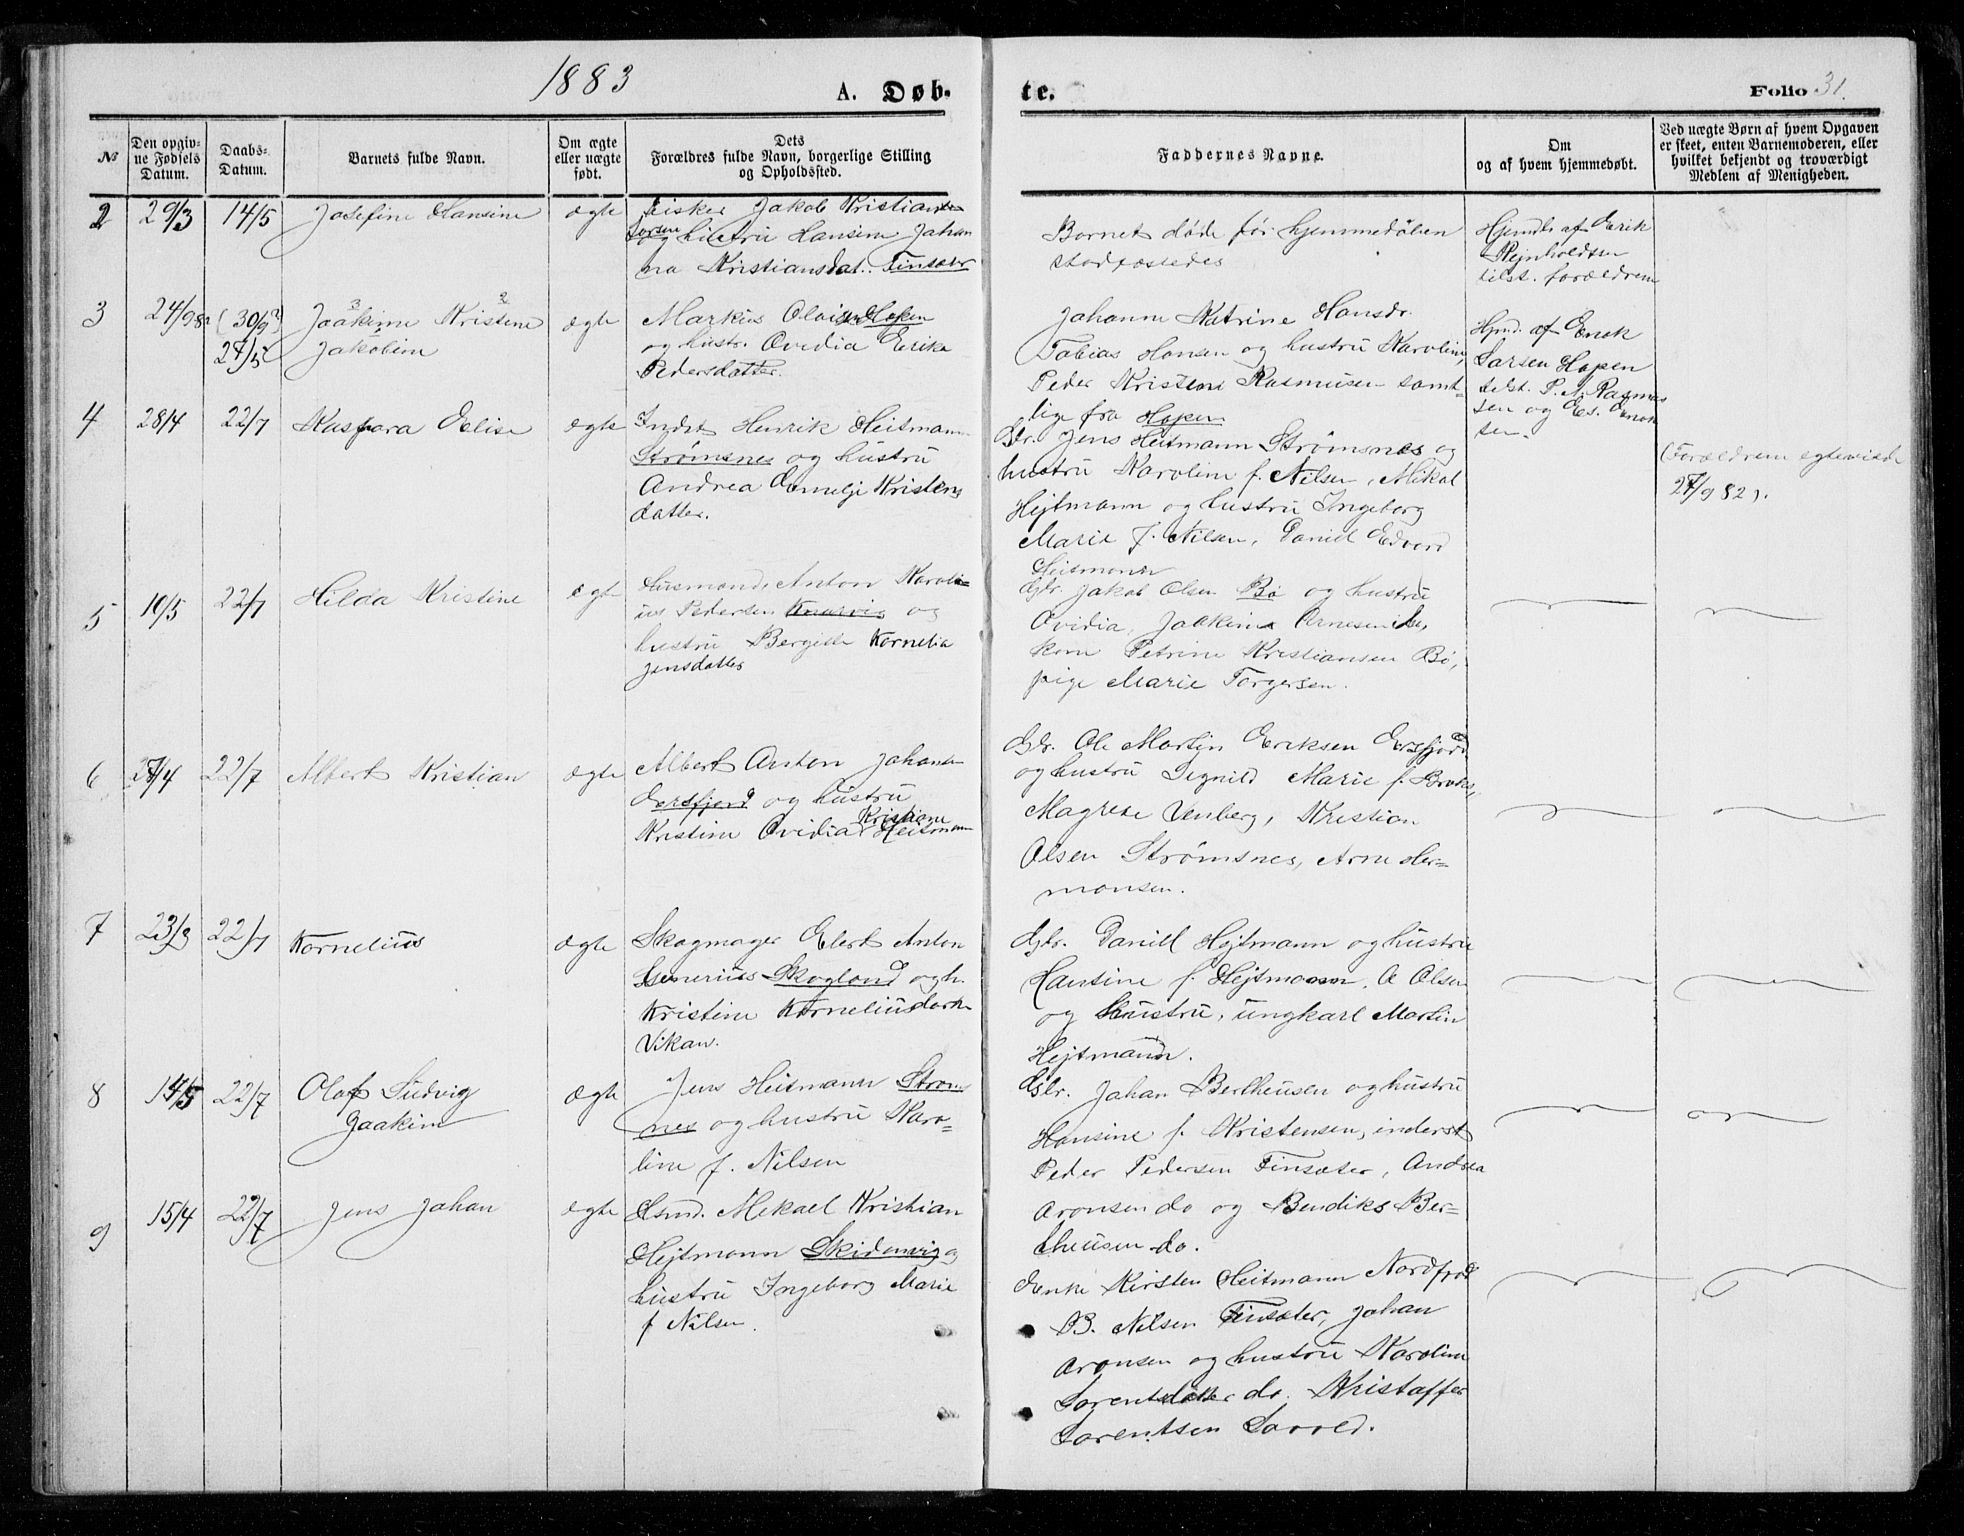 1883
A. Døb-
te.
Folio 31.
№
Den opgiv-
ne Fødsels
Datum.
Daabs-
Datum.
Barnets fulde Navn.
Om ægte
eller uægte
født.
Dets
Forældres fulde Navn, borgerlige Stilling
og Opholdssted.
Faddernes Navne.
Om
og af hvem hjemmedøbt.
Ved uægte Børn af hvem Opgaven
er skeet, enten Barnemoderen, eller
hvilket bekjendt og troværdigt
Medlem af Menigheden.
2 29/3 14/5 Josefine Hansine ægte Fisker Jakob Kristian
og hustru Hansine Johan
na Kristiansdat. Finsæter
Barnet døde før hjemmedåben
stadfæstedes
Hjemdb. af Erik
Rejnholdtsen
tilst. forældrene
3 24/9 82 (30/9) Joakim Kristine ægte Markus Olaisen Hopen
27/5 Jakobine og hustr. Ovidia Erika
Pedersdatter.
Johanne Katrine Hansdr.
Tobias Hansen og hustru Karoline,
Peder Kristian Rasmusen samt-
lige fra Hopen
Hjmd. af Enok
Larsen Hopen
tilst. P. A. Rasmus
sen og Es. Enok
sen.
4 28/4 22/7 Kaspara Elise ægte Inderst Henrik Heitmann
Strømsnes og hustru
Andrea Emelje Kristens
datter.
Gbr. Jens Heitmann Strømsnes og
hustru Karoline f. Nilsen, Mikal
Hejtmann og hustru Ingeborg
Marie f. Nilsen, Daniel Edvard
Heitmann
(Forældrene egteviede
27/9 82).
5 10/5 22/7 Hilda Kristine ægte Husmand Anton Karoli-
us Pedersen Knarvig og
hustru Bergitte Kornelia
Jensdatter
Gbr. Jakob Olsen Bø og hustru
Ovidia, Joakim Arnesen
kone Petrine Kristiansen Bø,
pige Marie Torgersen.
6 27/4 22/7 Albert Kristian ægte Albert Anton Johans
Eersfjord og hustru
Kristiane
Kristine Ovidia Heitmann
Gbr. Ole Martin Eriksen Ersfjord
og hustru Signild Marie f. Broks,
Magrete Venberg, Kristian
Olsen Strømsnes, Arne Her=
mansen.
7 23/3 22/7 Kornelius ægte Skogmager Elert Anton
Senerius Skogland og h.
Kristine Korneliusdatter
Vikan.
Gbr. Daniel Hejtmann og hustru
Hansine f. Hejtmann, O Olsen
og hustru, ungkarl Martin
Hejtmann.
8 14/5 22/7 Olaf Ludvig ægte Jens Heitmann Strøms
Joakim nes og hustru Karo-
line f. Nilsen
Gbr. Johan Bertheusen og hustru
Hansine f. Kristensen, inderst
Peder Pedersen Finsæter, Andrea
Aronsen do og Bendiks Ber=
theusen do.
9 15/4 22/7 Jens Johan ægte Hsmd. Mekael Kristian
Hejtmann Skidenvig og
hustru Ingeborg Marie
f Nilsen.
Enke Kirsten Heitmann Nordfjord
B. Nilsen Finsæter, Johan
Aronsen og hustru Karoline
Lorentsdatter do. Kristoffer
Lorentsen Lorved.